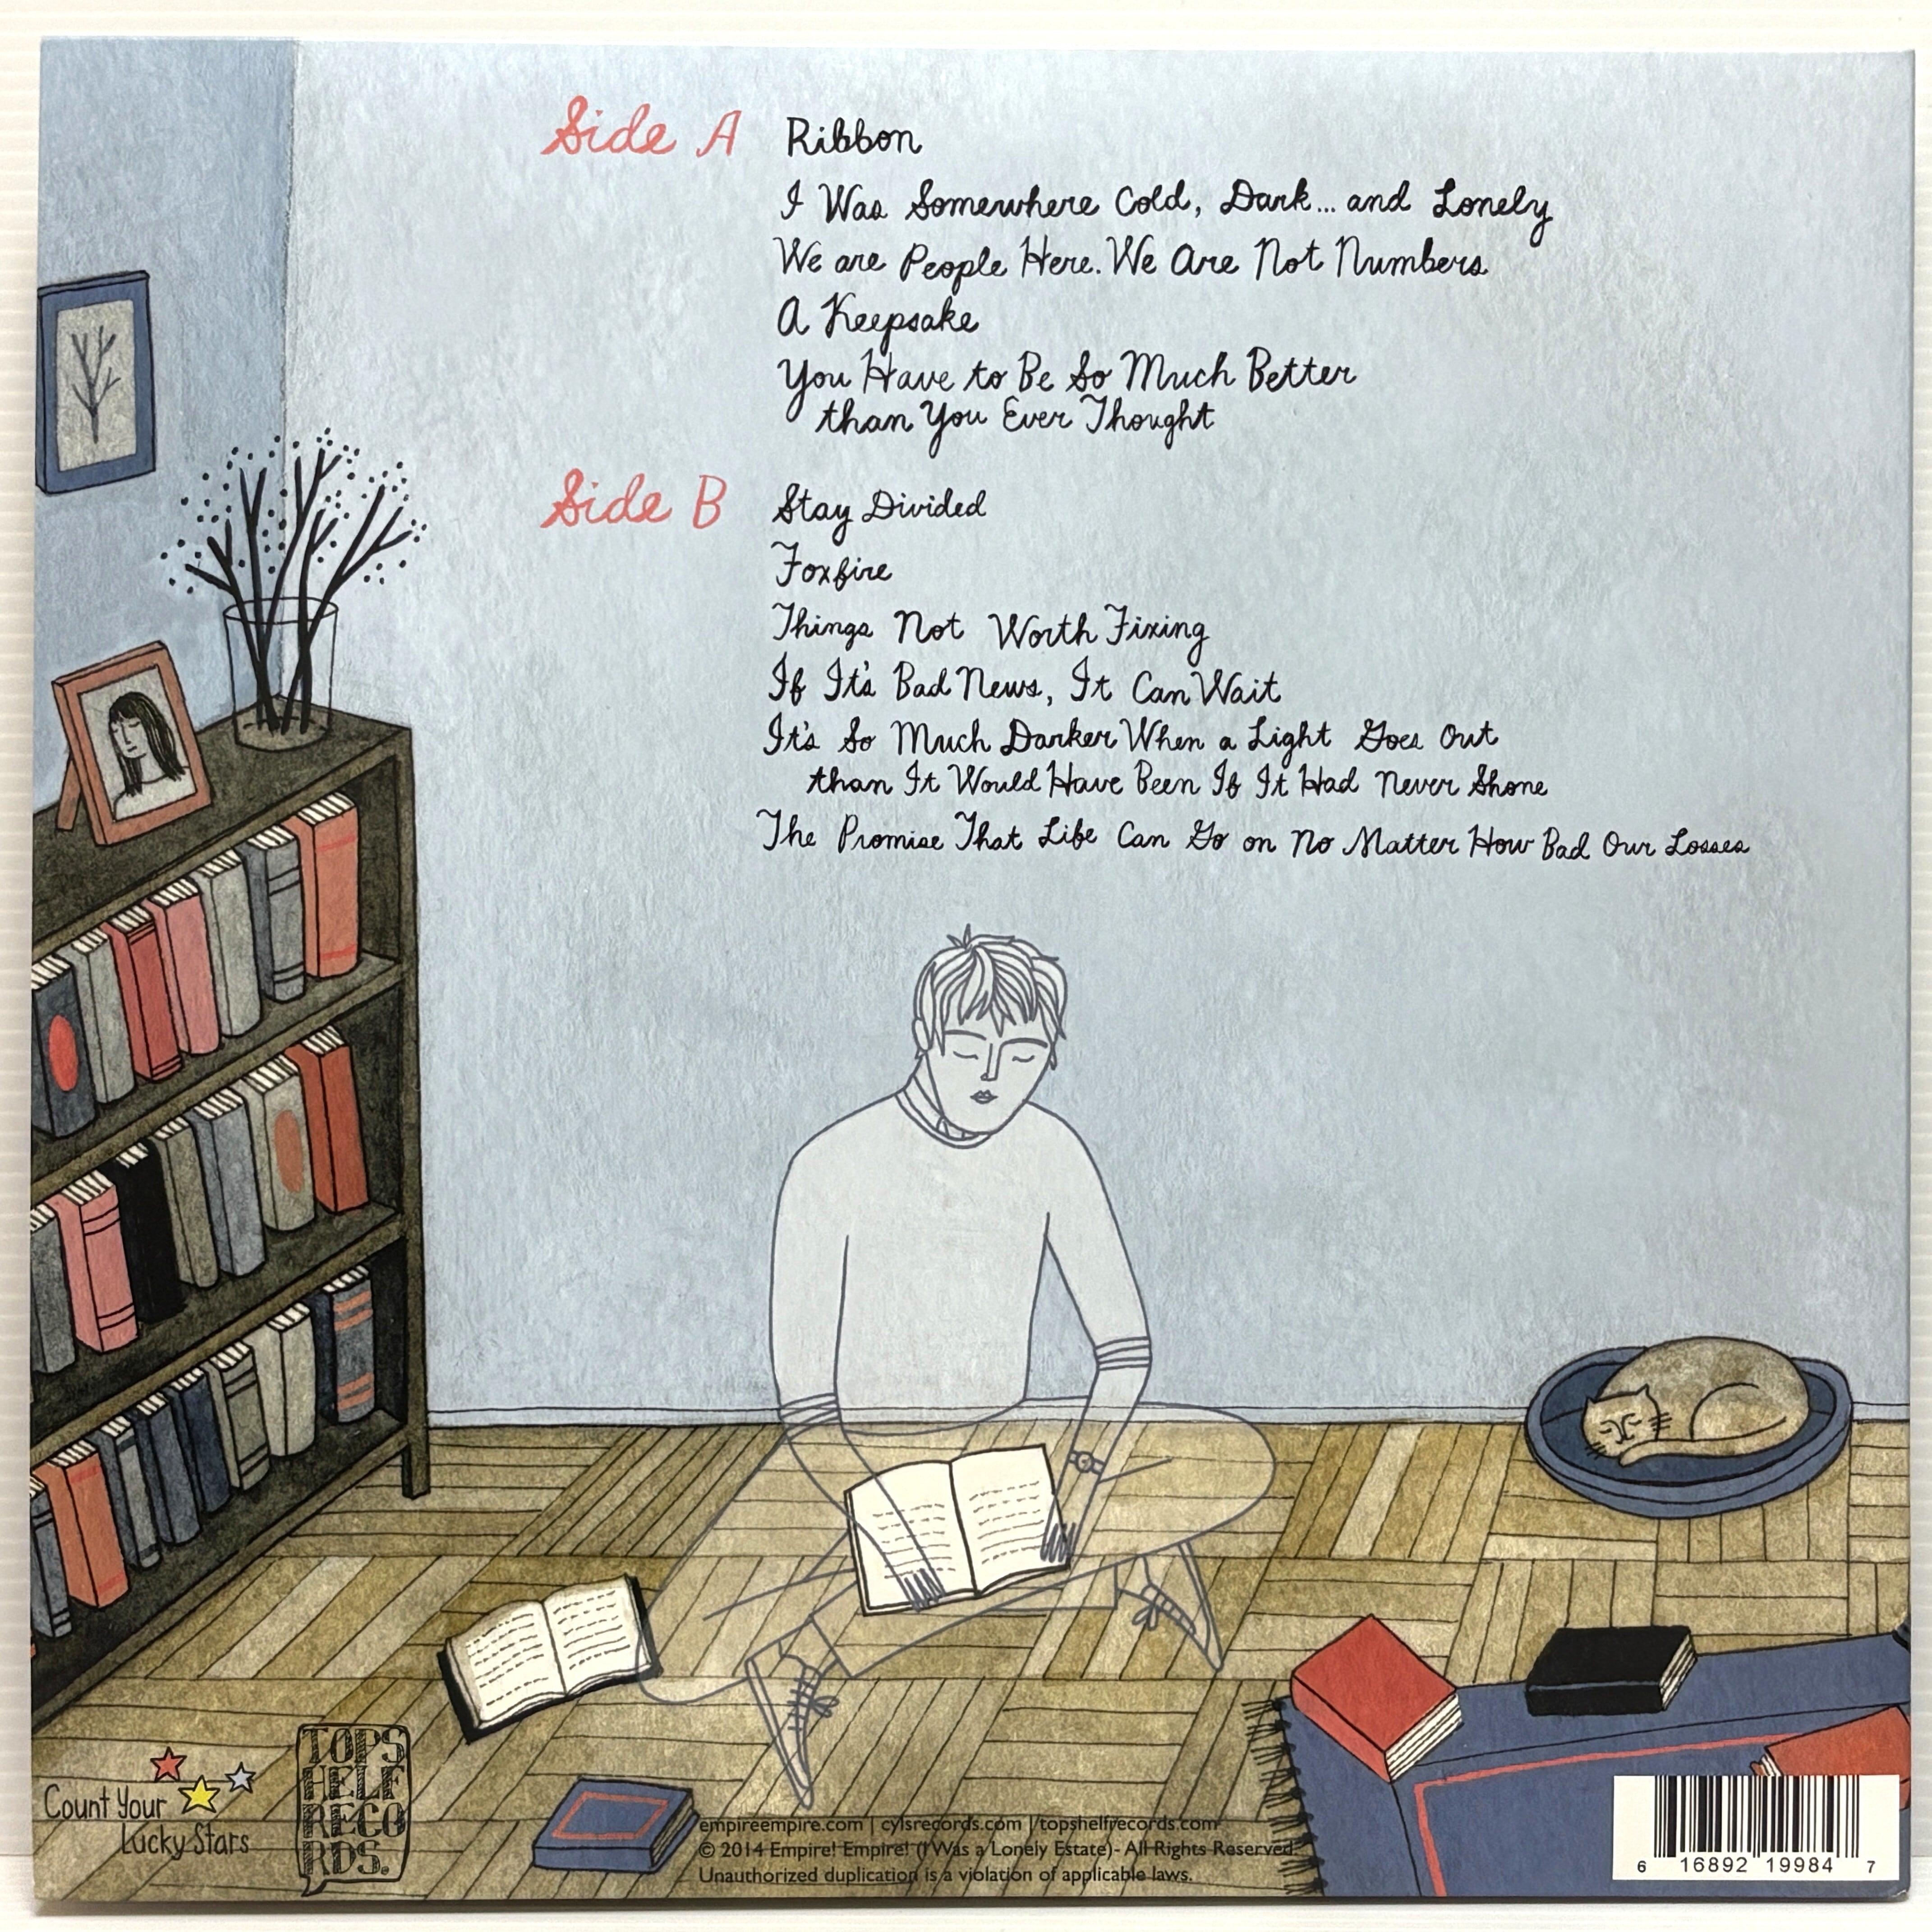 Side A Ribbon
I Was Somewhere Cold, Dark... and Lonely
We are People Here. We Are Not Numbers
A Keepsake
You Have to Be So Much Better
than You Ever Thought
Side B Stay Divided
Foxfire
Things Not Worth Fixing
If It's Bad News, It Can Wait
It's So Much Darker When a Light Goes Out
than It Would Have Been If It Had Never Shone
The Promise That Life Can Go on No Matter How Bad Our Losses
Count Your
Lucky Stars
TOPS
HELF
RECO
RDS.
empireempire.com | cylsrecords.com | topshelfrecords.com
© 2014 Empire! Empire! (I Was a Lonely Estate)- All Rights Reserved.
Unauthorized duplication is a violation of applicable laws.
6 16892 19984 7